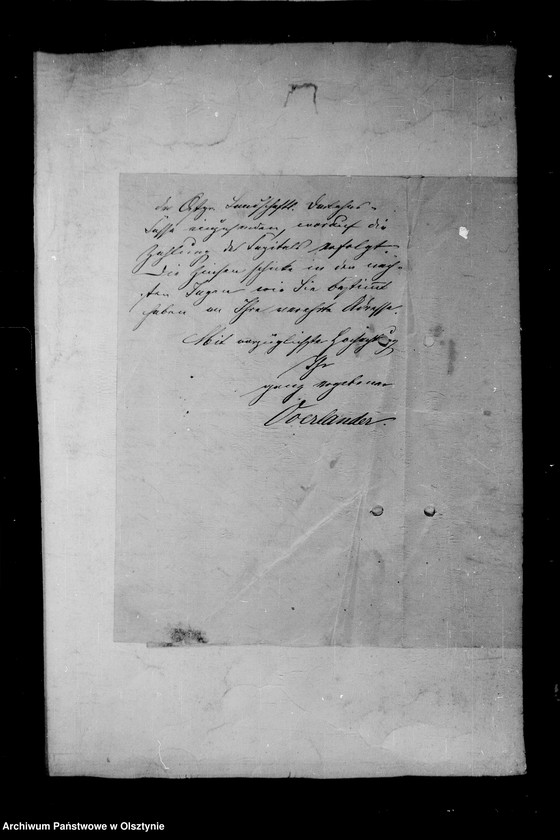 der Ostpr. Landschaftl. Darlehns-
Kasse einzusenden, worauf die
Zahlung des Capitals erfolgt.
Die Zinsen schicke in den näch-
sten Tagen wie Sie bestimmt
haben an Ihre werthe Adresse.
Mit vorzüglichster Hochachtung
Ihr
ganz ergebener
Overlander.
Archiwum Państwowe w Olsztynie